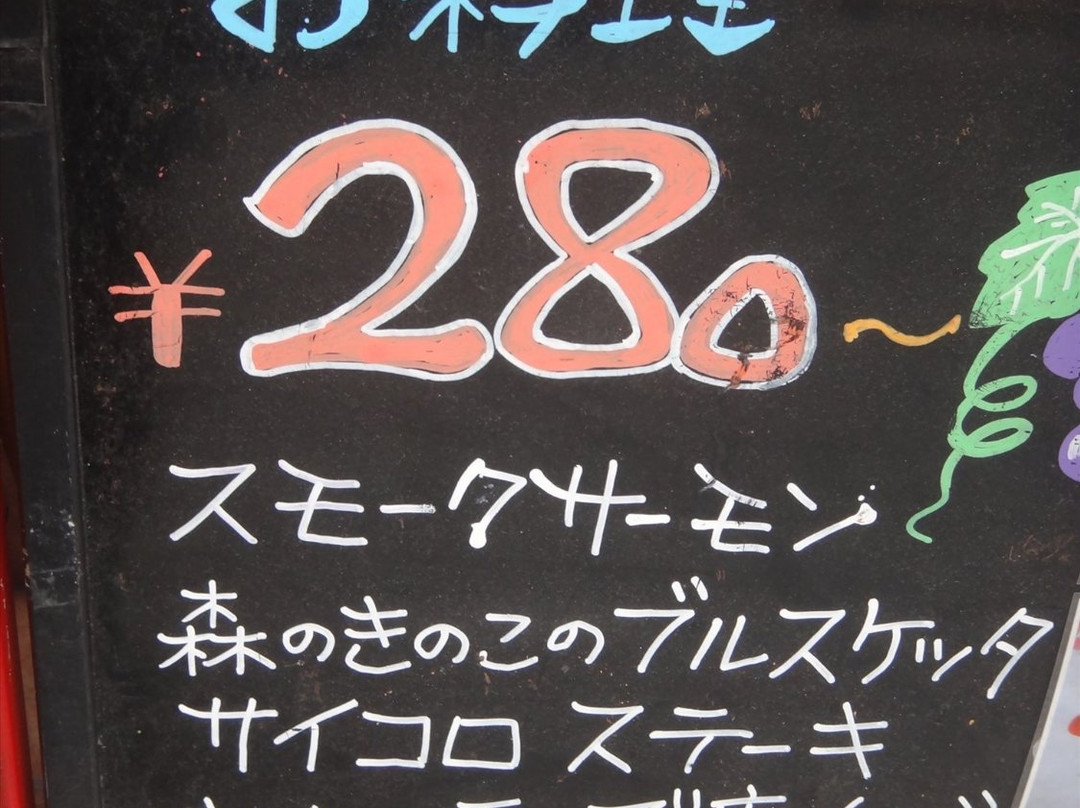 お料理
¥280~
スモークサーモン
森のきのこのブルスケッタ
サイコロ ステーキ